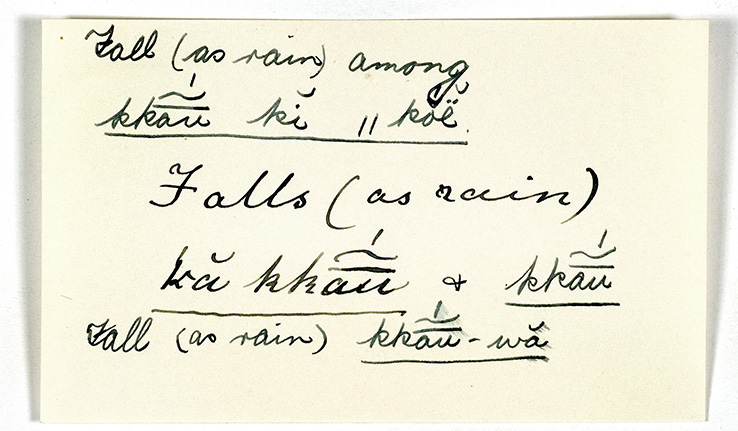 Fall (as rain) among
kkā̰ú kĭ ǁ kŏ́ë.
Falls (as rain)
kă kkā̰ú & kkā̰ú
Fall (as rain) kkā̰ú-wă